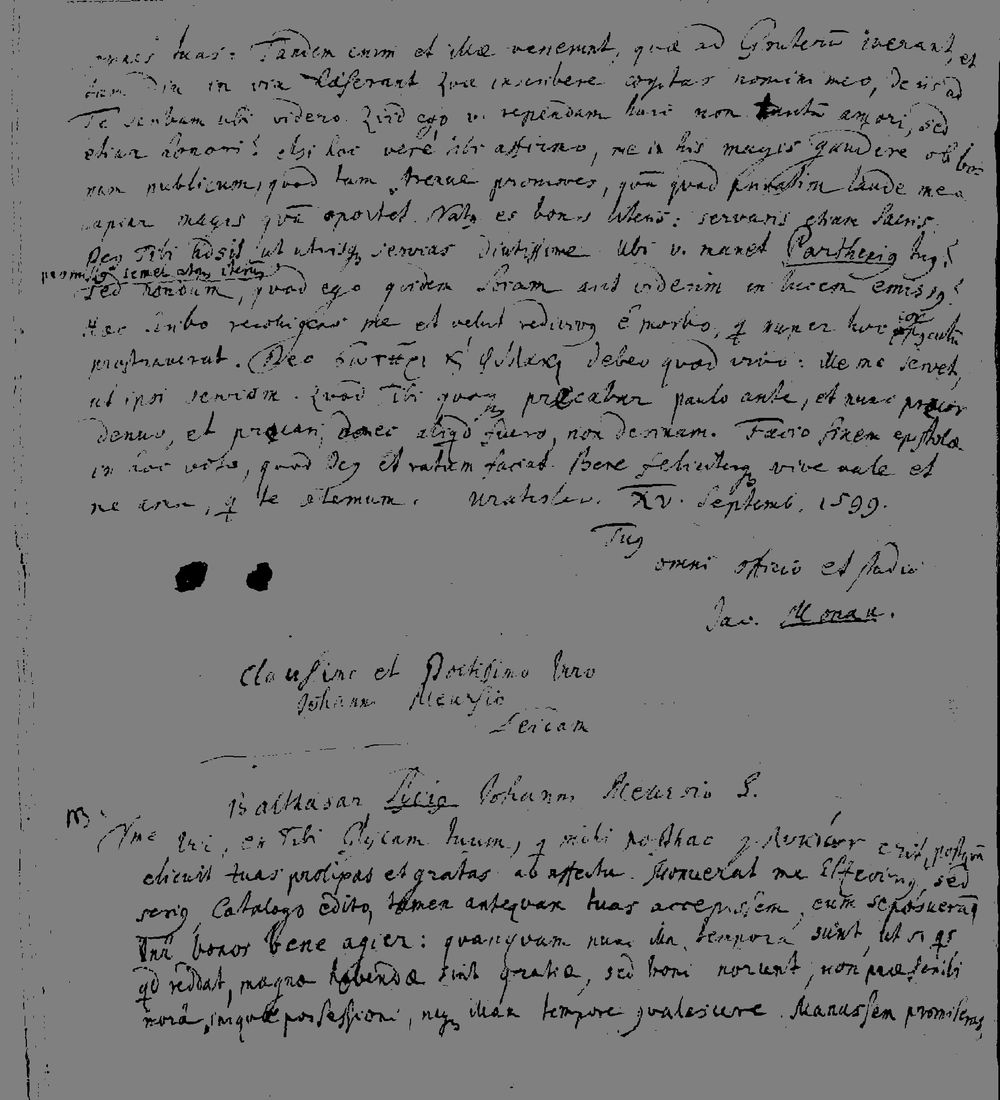 tuas: Tandem enim et illae venerunt, quae ad Gruterū iverant, et
tam diu in via haeserant Quae inscribere cogitas nomini meo, de iis ad
Te scribam ubi videro. Quid ego v. rependam huic non tantū amori, sed
etiam honori? etsi hoc verè tibi affirmo, me in his magis gaudere ob bo-
num publicum, quod tam strenue promoves, quā quod privatim laude mea
capiar magis quā oportet. Natq es bonis literis: servaris etiam sacris.
Deq Tibi adsit, ut utrisq servias diutissime. Ubi v. manet Parthenig tuq?
semel atq iterū
sed nondum, quod ego quidem sciam aut viderim in lucem emissq?
Haec scribo recolligens me et velut redivivq è morbo, q nuper hoc cor-
prostraverat. Deo Σωτῆρι κ̀ Φύλακι debeo quod vivo: ille me servet,
ut ipsi serviam. Quod Tibi quoq praecabar paulo ante, et nunc precor
denuo, et precari, donec aliqd fuero, non desinam. Facio finem epistolae
in hoc voto, quod Deq et ratum faciat. Bene feliciterq vive vale et
me ama, q te aeternum. Uratislav. XV. Septemb. 1599.
Tuq
omni officio et studio
Jac. Monau.
Clarissimo et Doctissimo Viro
Johanni Meursio
Leidam
Balthasar Lydiq Johanni Meursio S.
Cme Vir, en Tibi Glycam tuum, q mihi posthac erit, postquā
elicuit tuas prolixas et gratas ab affectu. Monuerat me Elsevirq, sed
seriq, Catalogo edito, tamen antequam tuas accepissem, eum seposueram
bonos bene agier: quanquam nunc illa tempora sunt, ut si qs
qd reddat, magnae habendae sint gratiae, sed boni norunt, non praescribi
morâ iniquae possessioni, neq illam tempore convalescere. Manassem promiseras,